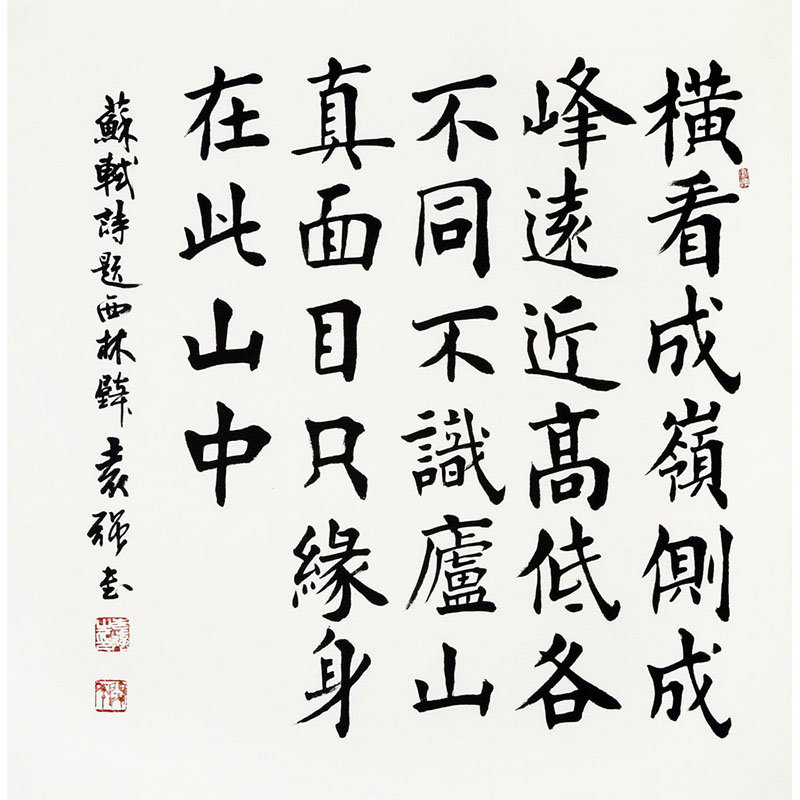 橫看成嶺側成
峰遠近高低各
不同不識廬山
真面目只緣身
在此山中
蘇軾詩題西林壁 袁強书